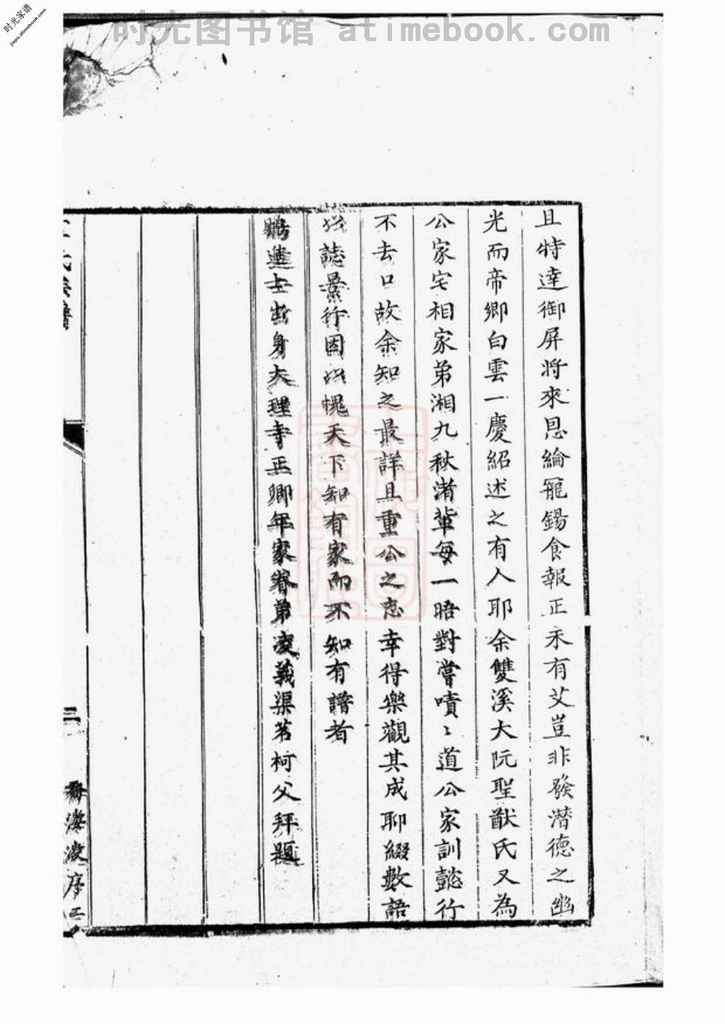 时光图书馆 atimebook.com
时光家谱
且特達御屏將來恩綸寵錫食報正未有艾豈非發潛德之幽
光而帝鄉白雲一慶紹述之有人耶余雙溪大阮聖猷氏又為
公家宅相家弟湘九秋渚輩每一晤對嘗嘖〻道公家訓懿行
不去口故余知之最詳且重公之志幸得樂觀其成聊綴數語
以誌景行因以愧天下知有家而不知有譜者
賜進士出身大理寺正卿年家眷弟凌義渠茗柯父拜題
氏宗譜
二
序